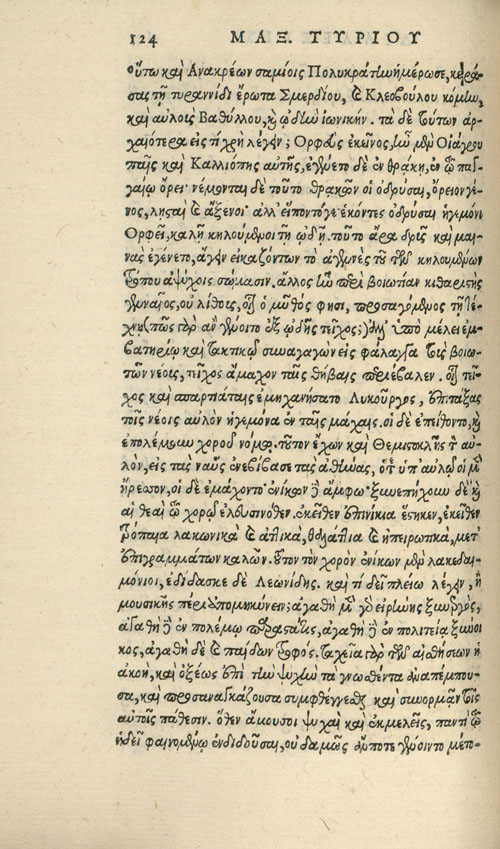 124 ΜΑΞ. ΤΥΡΙΟΥ
Οὕτω καὶ Ἀνακρέων σαμίοις Πολυκράτην ἡμέρωσε, κερά-
σας τῇ τυραννίδι ἔρωτα Σμερδίου, καὶ Κλεοβούλου κόμην,
καὶ αὐλοῖς Βαθύλλου, καὶ ᾠδὴν ἰωνικήν. τὰ δὲ τούτων ἀρ-
χαιότερα εἰς τί χρὴ λέγειν; Ὀρφεὺς ἐκεῖνος, ἦν μὲν Οἰάγρου
παῖς καὶ Καλλιόπης αὐτῆς, ἐγένετο δὲ ἐν θράκῃ, ἐν τῷ παγ-
γαίῳ ὄρει· νέμονται δὲ τοῦτο θρακῶν οἱ ὀδρύσαι, ὄρειον γέ-
νος, λῃσταὶ καὶ ἄξενοι· ἀλλ' εἵποντό γε ἑκόντες ὀδρύσαι ἡγεμόνι
Ὀρφεῖ, καλῇ κηλούμενοι τῇ ᾠδῇ. τοῦτο ἄρα δρῦς καὶ μαι-
νὰς ἐγένετο, ἄγειν εἰκαζόντων τὸ ἀγενὲς τοῦ τῶν κηλουμένων
τρόπου ἀψύχοις σώμασιν. ἄλλος ἦν περὶ βοιωτίαν κιθαριστὴς
γενναῖος, οὐ λίθοις, ὡς ὁ μῦθός φησι, προσαγόμενος τῇ τέ-
χνῃ (πῶς γὰρ ἂν γένοιτο ἐξ ᾠδῆς τεῖχος;) ὑπὸ μέλει ἐμ-
βατηρίῳ καὶ τακτικῷ συναγαγὼν εἰς φάλαγγα τοὺς βοιω-
τῶν νέοις, τεῖχος ἄμαχον ταῖς θήβαις περιέβαλεν. ὡς τεῖ-
χος καὶ σπαρτιάταις ἐμηχανήσατο Λυκοῦργος, ἐπιτάξας
τοῖς νέοις αὐλὸν ἡγεμόνα ἐν ταῖς μάχαις. οἱ δὲ ἐπείθοντο, καὶ
ἐπολέμουν χοροῦ νόμῳ. τοῦτον ἔχων καὶ Θεμιστοκλῆς τὸν αὐ-
λόν, εἰς τὰς ναῦς ἀνεβίβασε τὰς ἀθήνας, ὅτ' ὑπ' αὐλῷ οἱ μὲν
ἤρεσσον, οἱ δὲ ἐμάχοντο· ἐνίκων δὲ ἄμφω· ξυνεπήχουν δὲ καὶ
αἱ θεαὶ τῷ χορῷ ἐλευσινόθεν. ἐκεῖθεν ἐπινίκια ἕστηκεν, ἐκεῖθεν
τρόπαια λακωνικὰ καὶ ἀττικά, θαλάττια καὶ ἠπειρωτικά, μετ'
ἐπιγραμμάτων καλῶν. οὕτω τὸν χορὸν ἐνίκων μὲν λακεδαι-
μόνιοι, ἐδίδασκε δὲ Λεωνίδης. καὶ τί δεῖ πλείω λέγειν, ἢ
μουσικῆς πέρι ὑπομηκύνειν; ἀγαθὴ μὲν γὰρ εἰρήνης ξυνεργός,
ἀγαθὴ δὲ ἐν πολέμῳ προστάτις, ἀγαθὴ δὲ ἐν πολιτείᾳ ξύνοι-
κος, ἀγαθὴ δὲ καὶ παίδων τροφός. ταχεῖα γὰρ τῶν αἰσθήσεων ἡ
ἀκοή, καὶ ὀξέως ἐπὶ τὴν ψυχὴν τὰ γνωσθέντα διαπέμπου-
σα, καὶ προσαναγκάζουσα συμφθέγγεσθαι καὶ συνορμᾶν τοῖς
αὑτοῖς πάθεσιν. ὅθεν ἄμουσοι ψυχαὶ καὶ ἐκμελεῖς, παντὶ τῷ
ἡδεῖ φαινομένῳ ἐνδιδοῦσαι, οὐδαμῶς ἄν ποτε γένοιντο μέτο-